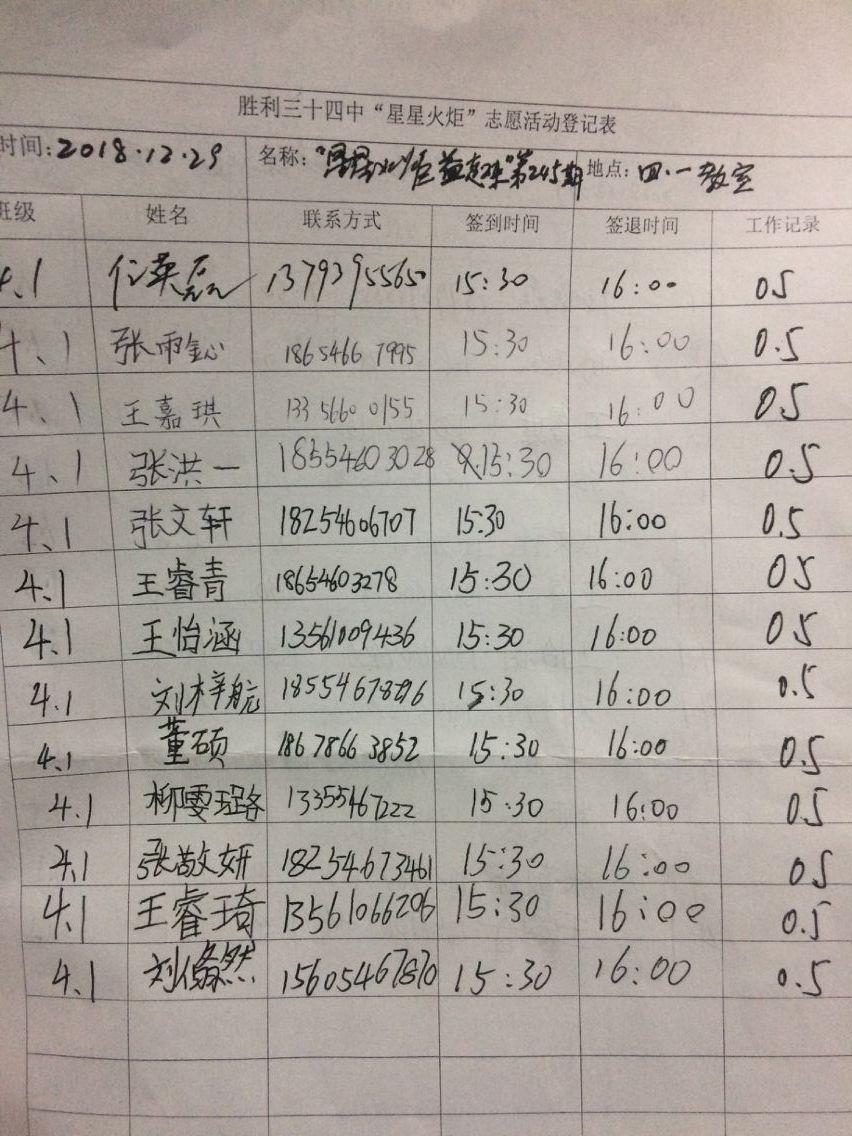 胜利三十四中“星星火炬”志愿活动登记表
时间:2018.12.29 名称:“星星火炬 第245期 地点:四.一教室
班级 姓名 联系方式 签到时间 签退时间 工作记录
4.1 13793955650 15:30 16:00 05
4.1 张雨鈊 18654667995 15:30 16:00 0.5
4.1 王嘉琪 133 5660 0155 15:30 16:00 05
4.1 张洪一 18554603028 15:30 16:00 0.5
4.1 张文轩 18254606707 15:30 16:00 0.5
4.1 王睿青 18654603278 15:30 16:00 05
4.1 王怡涵 13561009436 15:30 16:00 05
4.1 刘梓航 15:30 16:00 0.5
4.1 董硕 186 7866 3852 15:30 16:00 0.5
4.1 柳雯璐 13355467222 15:30 16:00 0.5
4.1 张敬妍 18254673461 15:30 16:00 05
4.1 王睿琦 13561066206 15:30 16:00 0.5
4.1 刘修然 15605467870 15:30 16:00 0.5